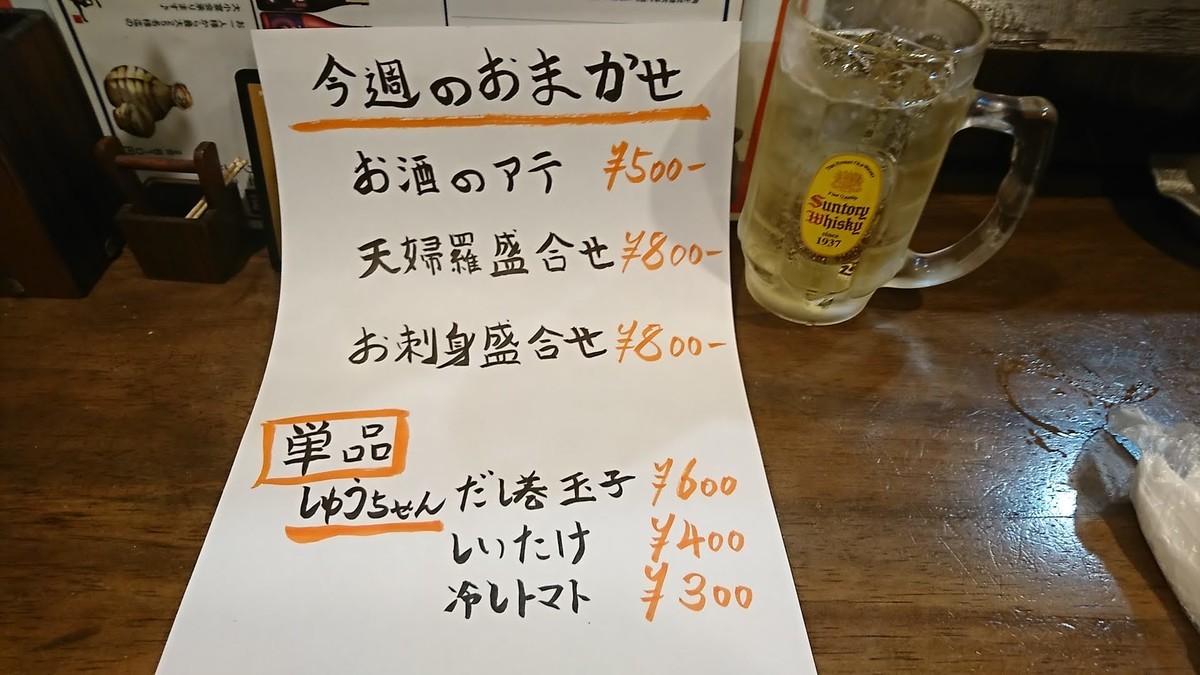 今週のおまかせ
お酒のアテ ¥500-
天婦羅盛合せ ¥800-
お刺身盛合せ ¥800-
単品
しゅうちゃん だし巻玉子 ¥600
しいたけ ¥400
冷しトマト ¥300
Suntory
Whisky
since
1937